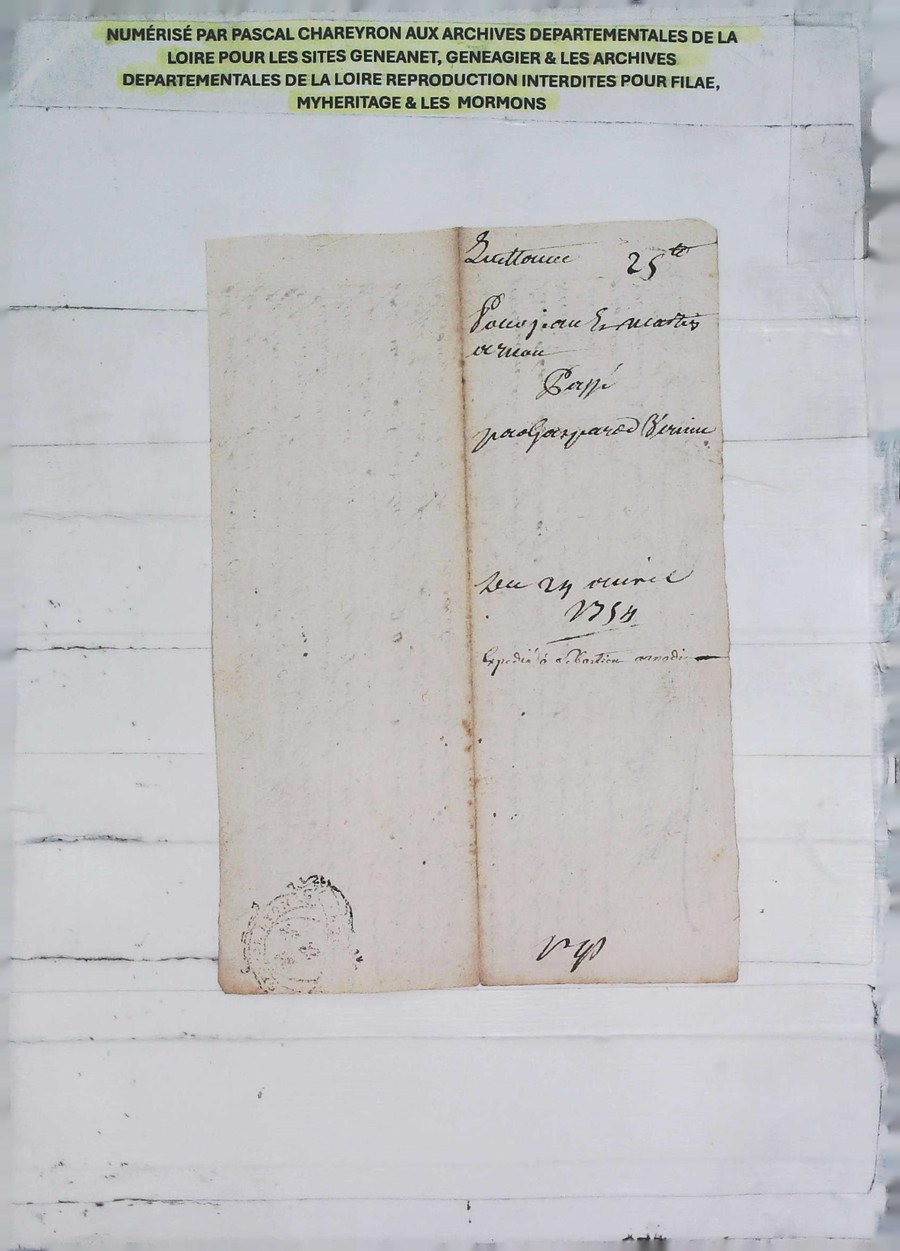 NUMÉRISÉ PAR PASCAL CHAREYRON AUX ARCHIVES DEPARTEMENTALES DE LA
LOIRE POUR LES SITES GENEANET, GENEAGIER & LES ARCHIVES
DEPARTEMENTALES DE LA LOIRE REPRODUCTION INTERDITES POUR FILAE,
MYHERITAGE & LES MORMONS
Quittance 25 tt
Pour jean & martin
arnou
Passé
par Gaspard Verine
Du 24 avril
1754
Expedié a